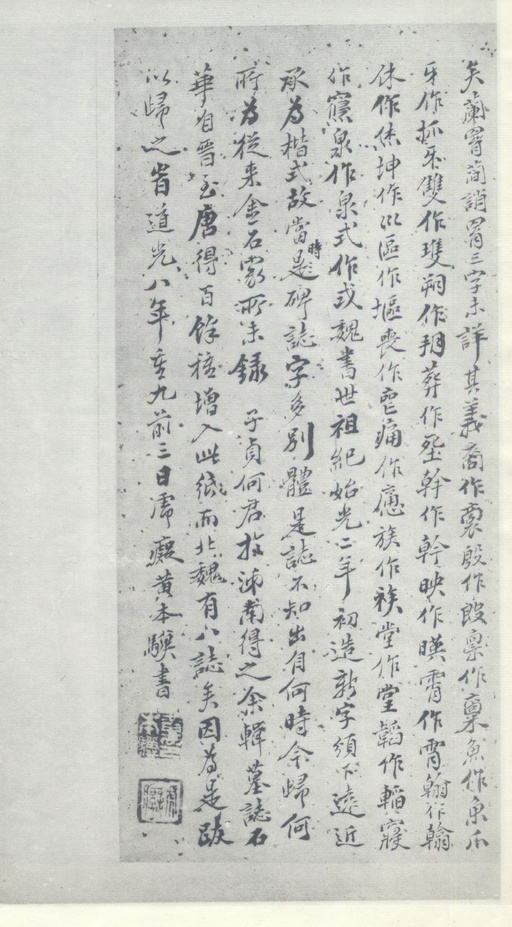 矣蘭胷蕳誚胷三字未詳其義裔作裔殷作殷禀作稟魚作魚爪
牙作抓牙雙作雙朔作朔葬作塟幹作幹映作暎霄作霄翰作翰
休作烋坤作巛區作摳喪作䘮痛作慟族作族堂作堂韜作韜寢
作寢泉作泉式作式魏書世祖紀始光二年初造新字頒下遠近
永為楷式故當時是碑誌字多別體是誌不知出自何時今歸何
所為從來金石家所未錄 子貞何君於沛南得之余輯墓誌石
華自晉至唐得百餘種增入此紙而北魏有八誌矣因為是跋
以歸之旹道光八年重九前三日虎癡黃本驥書